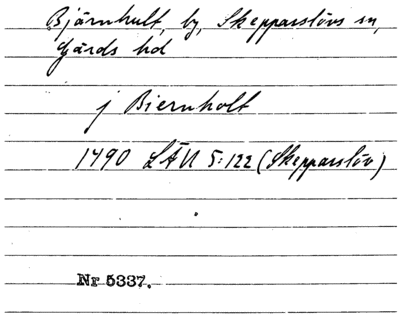 Bjärnhult, by, Skepparslövs sn,
Gärds hd
j Biernholt
1490 LÄU 5:122 (Skepparslöv)
Nr 5337.